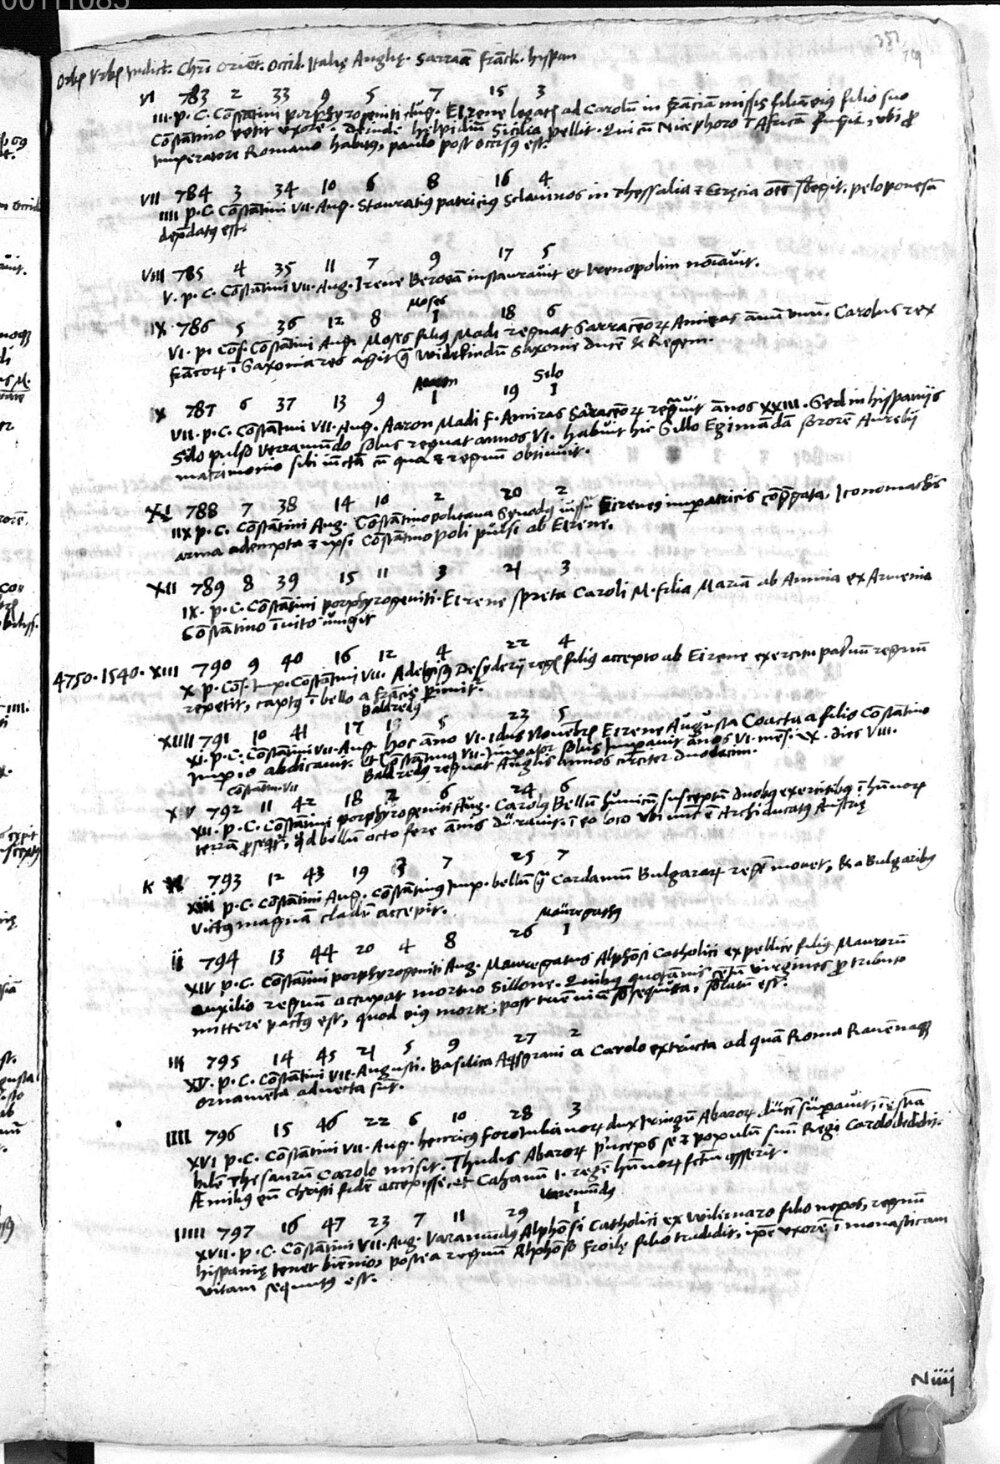 00111085
Orbis Urbis Indict. Chri Orient. Occid. Italię Anglię. Sarrac Franck. hispan
VI 783 2 33 9 5 7 15 3
III. p. C. Constantini porphyrogeniti Aug. Eirene legatis ad Carolū in Franciā missis filiā eius filio suo
Constantino petit uxorē. Deinde helpidiū Sicilia pellit. Qui cū Nicephoro ī Africā fugit, ubi p
imperatore Romano habitus, paulo post occisus est.
VII 784 3 34 10 6 8 16 4
IIII p. C. Constantini VII. Aug. Stauratius patricius Sclavinos in Thessalia & Gręcia subegit. peloponesū
depdatus est.
VIII 785 4 35 11 7 9 17 5
V. p. C. Constantini VII. Aug. Irene Beroeā instauravit et Irenopolim noīavit.
Moses
IX 786 5 36 12 8 1 18 6
VI. p. Cons. Constantini Aug. Moses filius Madi regnat Sarraceno Amiras annū unū. Carolus rex
francor ī Saxonia res agit widekindū Saxonie ducē & Regem.
Aaron Silo
X 787 6 37 13 9 1 19 1
VII. p. C. Constantini VII. Aug. Aaron Madi F. Amiras Saraceno regnavit annos XXIII. Sed in hispaniis
Silo pulso Verramundo solus regnat annos VI. habuit hic Sillo Egimundā sororē Aurelii
matrimonio sibi iunctā cū qua & regnum obtinuit.
XI 788 7 38 14 10 2 20 2
IIX p. C. Constantini Aug. Constantinopolitana Synodus iussu Eirenes impatricis cōgregata. Iconomachis
arma adempta & ipsi Constantinopoli pulsi ab Eirene.
XII 789 8 39 15 11 3 21 3
IX. p. C. Constantini porphyrogeniti. Eirene spreta Caroli M. filia Mariā ab Amnia ex Armenia
Constantino īvito iungit
4750. 1540. XIII 790 9 40 16 12 4 22 4
X p. Cos. Imp. Constantini VII. Adelgisus Desyderii regis filius accepto ab Eirene exercitu patriū regnum
repetit, captus ī bello a francis pimitur.
Baldredus
XIIII 791 10 41 17 13 5 23 5
XI. p. C. Constantini VII. Aug. hoc anno VI. Idus Novembris Eirene Augusta Coacta a filio Constantino
Imp.o abdicavit. et Constantinus VII. Imperator solus imperavit anos VI. mens. IX. dies VIII.
Baldredus regnat Anglis annos circiter duodecim.
Constatin. VII
XV 792 11 42 18 2 6 24 6
XII. p. C. Constantini porphyrogeniti Aug. Carolus Bellū hunicū susceptū duobus exercitibus ī hunnor
terrā pseqtr, qd bellum octo fere annis duravit. ī eo loco ubi nunc ē Archiducatus Austrię
K 793 12 43 19 3 7 25 7
XIII p. C. Constantini Aug. Constantinus Imp. bellum Cardamum Bulgaror regē movet, & a Bulgaribus
Victus magnam cladē accepit.
Mauregatus
ii 794 13 44 20 4 8 26 1
XIV p. C. Constantini porphyrogeniti Aug. Mauregatus Alphonsi Catholici ex pellice filius Maurorū
auxilio regnū occupat mortuo Sillone. Quibus quotannis cētū virgines p tributo
mittere pactus est, quod eius morte, solutū est.
III 795 14 45 21 5 9 27 2
XV. p. C. Constantini VII. Augusti. Basilica Aqsgrani a Carolo extructa ad quā Roma Ravennaq
ornamēta advecta sūt.
IIII 796 15 46 22 6 10 28 3
XVI p. C. Constantini VII. Aug. henricus foroiulianor dux Abaror ducē supavit,
bilem thesaurū Carolo misit. Thudus Abaror princeps se & populū suū Regi Carolo dedidit.
Aemilius eū Christi fidē accepisse, et Cahanū I. regē hunnor fctm asserit.
Veremūdus
IIIII 797 16 47 23 7 11 29 1
XVII. p. C. Constantini VII. Aug. Varamūdus Alphonsi Catholici ex Wilimaro filio nepos, regnū
hispanię tenet biennio, postea regnum Alphonso Froilę filio tradidit, ipse uxorē ī monasticam
vitam sequutus est.
N iiij